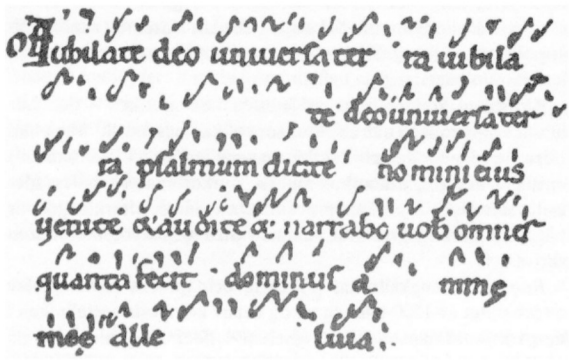 Iubilate deo uniuersa ter ra iubila
te deo uniuersa ter
ra psalmum dicite nomini eius
uenite & audite & narrabo uob omnes
quanta fecit dominus a nimę
męę alle luia